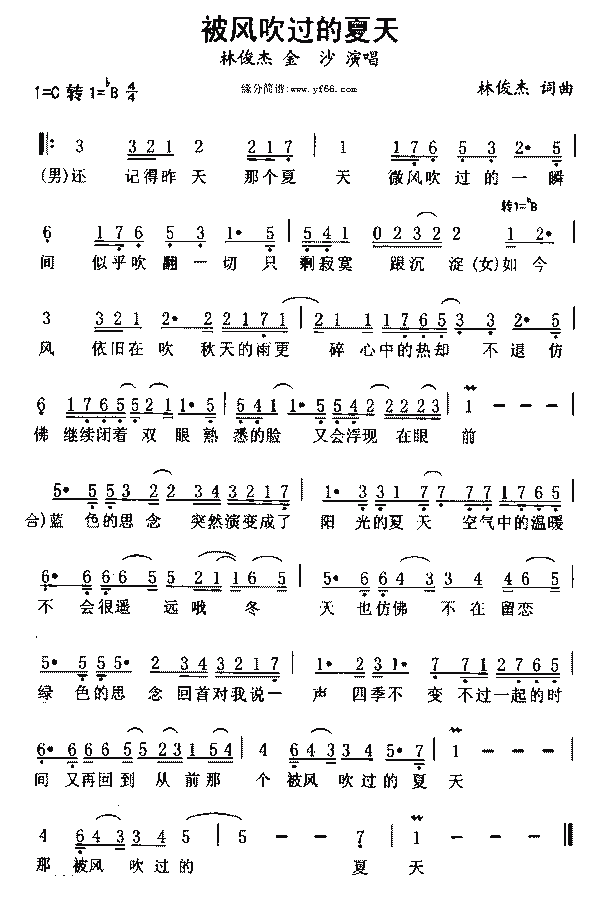 被风吹过的夏天
林俊杰 金 沙 演唱
1=C 转 1=♭B 4/4 缘分简谱:www.yf66.com 林俊杰 词曲
3 3 2 1 2 2 1 7 | 1 1 7 6 5 3 2• 5
(男)还 记得昨 天 那个夏 天 微风吹 过 的 一 瞬
转1=♭B
6 1 7 6 5 3 1• 5 | 5 4 1 0 2 3 2 2 1 2•
间 似乎吹 翻 一 切 只 剩寂寞 跟沉 淀 (女)如 今
3 3 2 1 2• 2 2 2 1 7 1 | 2 1 1 1 7 6 5 3 3 2• 5
风 依旧在 吹 秋天的雨更 碎 心中的热却 不 退 仿
6 1 7 6 5 5 2 1 1• 5 | 5 4 1 1• 5 5 4 2 2 2 2 3 | 1 – – –
佛 继续闭着 双 眼 熟 悉的脸 又会浮现 在眼 前
5• 5 5 3 2 2 3 4 3 2 1 7 | 1• 3 3 1 7 7 7 7 1 7 6 5
合)蓝 色的思 念 突然演变成了 阳 光的夏 天 空气中的温暖
6• 6 6 6 5 5 2 1 1 6 5 | 5• 6 6 4 3 3 4 6 5
不 会很遥 远哦 冬 天 也仿佛 不 在 留恋
5• 5 5 5• 2 3 4 3 2 1 7 | 1• 2 3 1• 7 7 1 2 7 6 5
绿 色的思 念 回首对我说一 声 四季不 变 不过一起的时
6• 6 6 6 5 5 2 3 1 5 4 | 4 6 4 3 3 4 5• 7 | 1 – – –
间 又再回 到 从 前那 个 被风 吹过 的 夏 天
4 6 4 3 3 4 5 | 5 – – 7 | 1 – – ‖
那 被风 吹过 的 夏 天